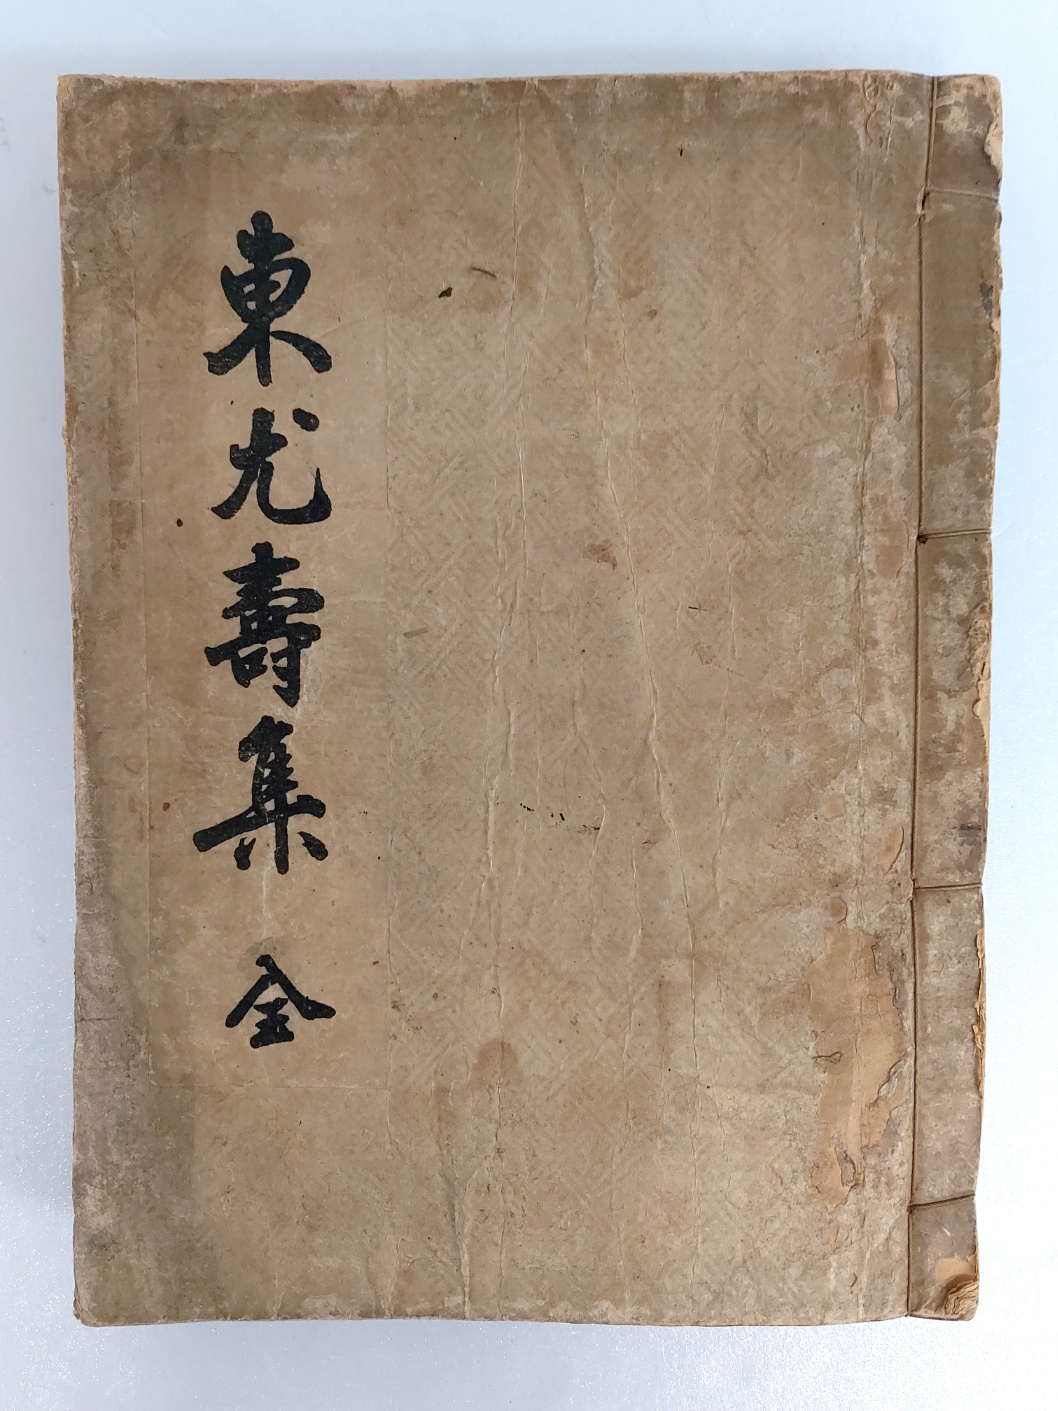 東尤壽集 全